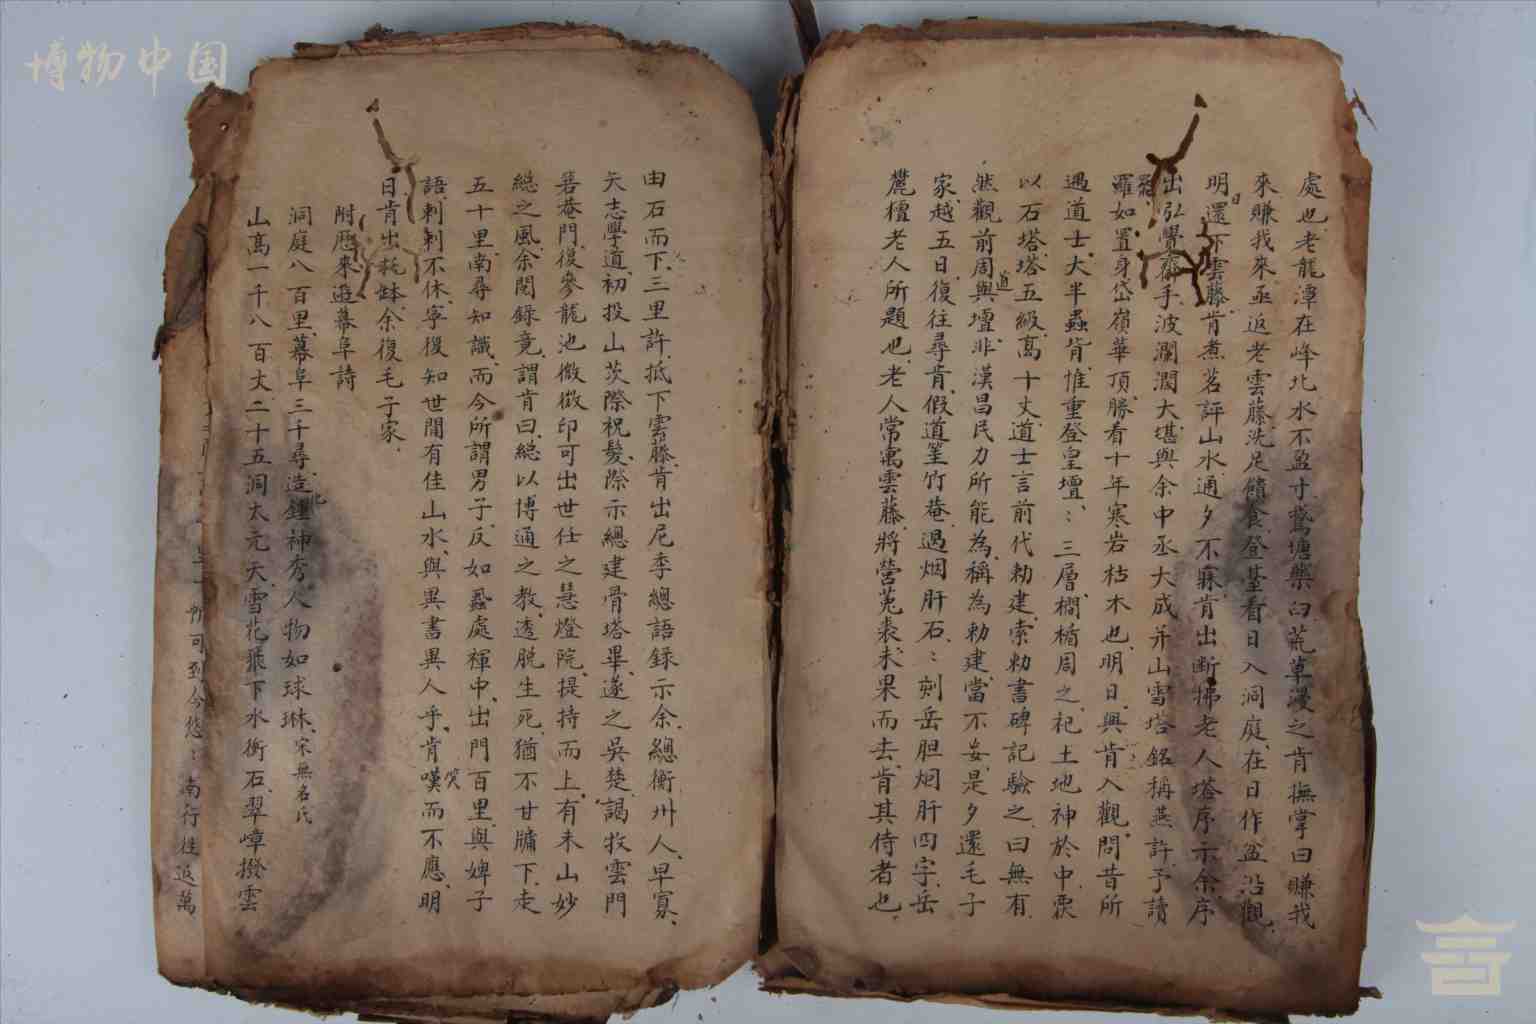 博物中国
處也老龍潭在峰北水不盈寸甃塘樂臼荒草漫之肯撫掌曰賺我
來賺我來丞返老雲藤洗足饋食登基看日入洞庭在日作盆沿觀
明日還下雲藤肯煮茗評山水通夕不寐肯出斷拂老人塔序示余序
出弘覺齋手波瀾闊大堪與余中丞大成并山雪塔銘稱燕許予讀
羅如置身岱嶺華頂勝看十年寒岩枯木也明日與肯入觀問昔所
遇道士大半蟲肯惟重登皇壇〻三層欄楯周之祀土地神於中
以石塔塔五級高十丈道士言前代勅建索勅書碑記驗之曰無有
然觀前周道與壇非漢昌民力所能為稱為勅建當不妄是夕還毛子
家越五日復往尋肯假道筀竹菴過烟肝石〻刻岳胆烟肝四字岳
麓檀老人所題也老人常寓雲藤將營菟裘未果而去肯其侍者也
由石而下三里許抵下雲藤肯出尼季總語錄示余總衡州人早寡
矢志學道初投山茨際祝髮際示總建骨塔畢遂之吳楚謁牧雲門
箬菴門復參龍池微微印可出世任之慧燈院提持而上有未山妙
總之風余閱錄竟謂肯曰總以博通之教透脫生死猶不甘牖下走
五十里南尋知識而今所謂男子反如蝨處褌中出門百里與婢子
語剌剌不休寧復知世間有佳山水與異書異人乎肯嘆笑而不應明
日肯出托缽余復毛子家
附歷來遊幕阜詩
洞庭八百里幕阜三千尋造化鍾神秀人物如球琳宋無名氏
山高一千八百丈二十五洞太元天雪花飛下水衝石翠嶂撥雲
可到今悠〻南行徃返萬